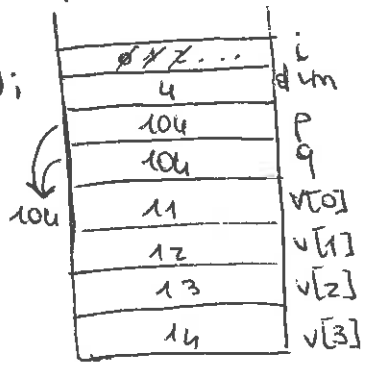 0 1 2 ... i
); 4 dim
104 p
104 q
104 11 v[0]
12 v[1]
13 v[2]
14 v[3]